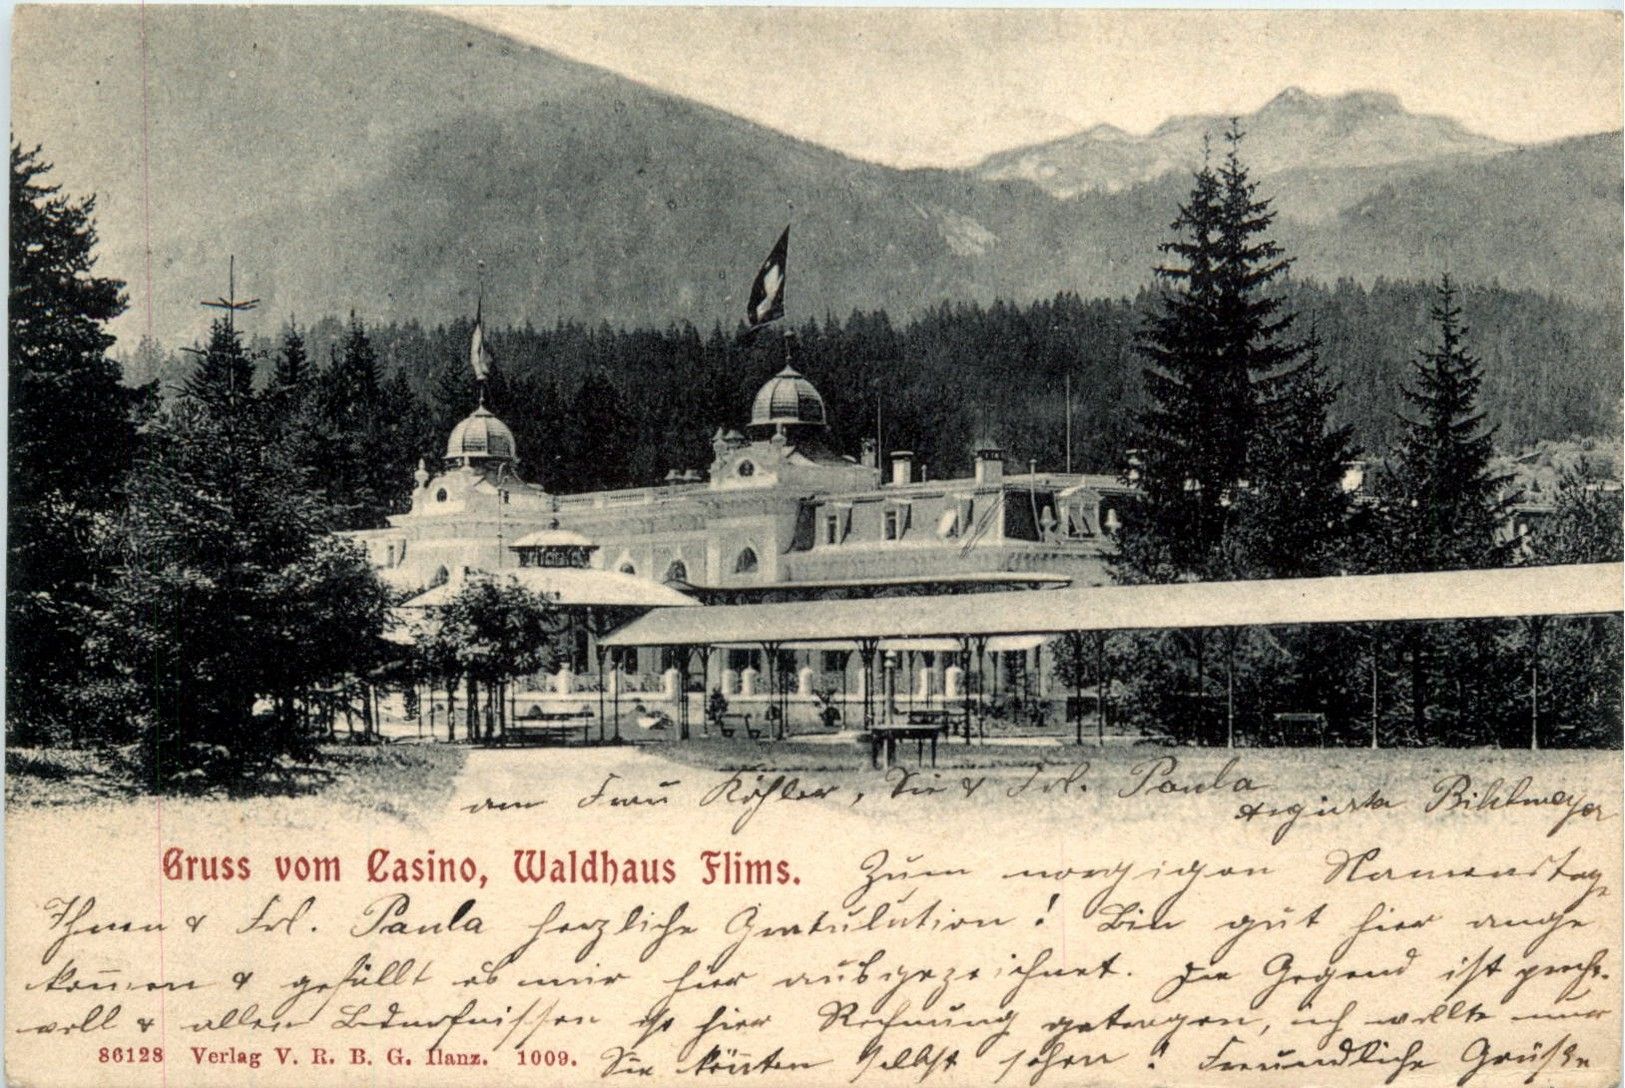 an Frau Köhler, Sie & Frl. Paula
Augusta Bihlmeyer
Gruss vom Casino, Waldhaus Flims.
Zum morgigen Namenstage
Ihnen & Frl. Paula herzliche Gratulation! Bin gut hier ange
kommen & gefällt es mir hier ausgezeichnet. Die Gegend ist pracht-
voll & allen Bedürfnissen ist hier Rechnung getragen, ich wollte nur
Sie könnten selbst sehen! Freundliche Grüße
86128 Verlag V. R. B. G. Ilanz. 1009.